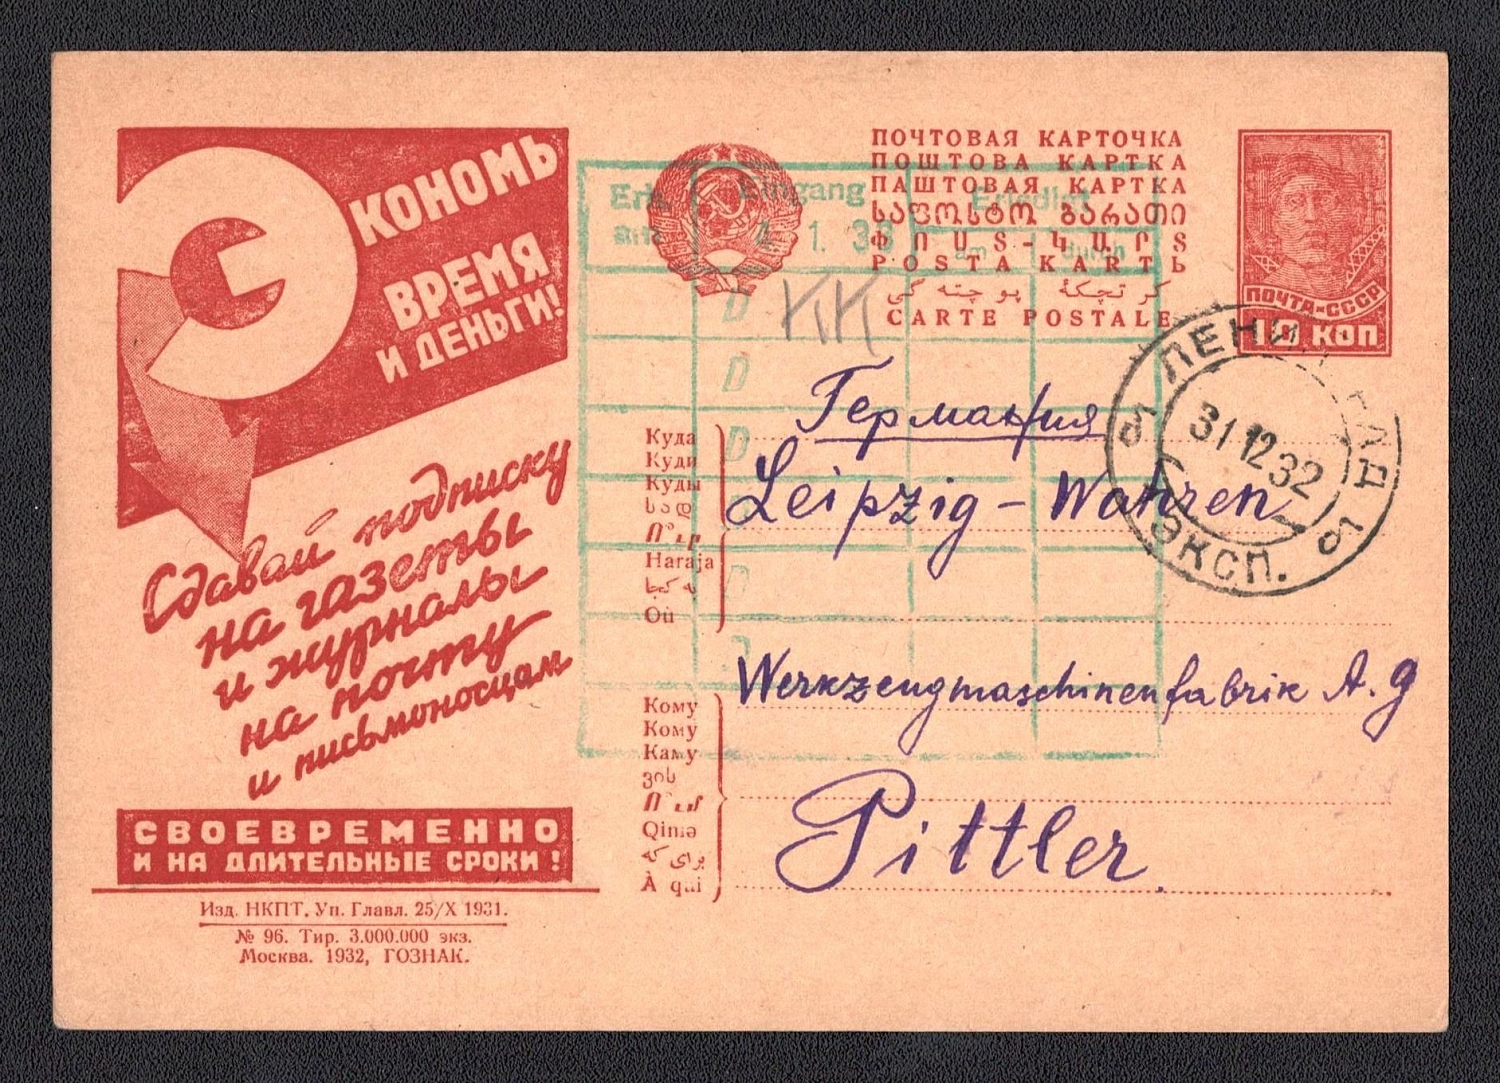 ЭКОНОМЬ
ВРЕМЯ
И ДЕНЬГИ!
Сдавай подписку
на газеты
и журналы
на почту
и письмоносцам
СВОЕВРЕМЕННО
И НА ДЛИТЕЛЬНЫЕ СРОКИ!
Изд. НКПТ. Уп. Главл. 25/X 1931.
№ 96. Тир. 3.000.000 экз.
Москва. 1932, ГОЗНАК.
ПОЧТОВАЯ КАРТОЧКА
ПОШТОВА КАРТКА
ПАШТОВАЯ КАРТКА
ՓՈՍՏ-ԿԱՐՏ
POSTA KARTЬ
CARTE POSTALE
ПОЧТА СССР
10 КОП
Eingang
Erledigt
am durch
4. 1. 33
D
D
D
D
KK
ЛЕНИНГРАД
31 12 32
ЭКСП.
Куда
Куди
Куды
სად
Haraja
به کجا
Où
Германия
Leipzig - Wahren
Кому
Кому
Каму
ვის
Qimə
برای که
À qui
Werkzeugmaschinenfabrik A. G
Pittler.